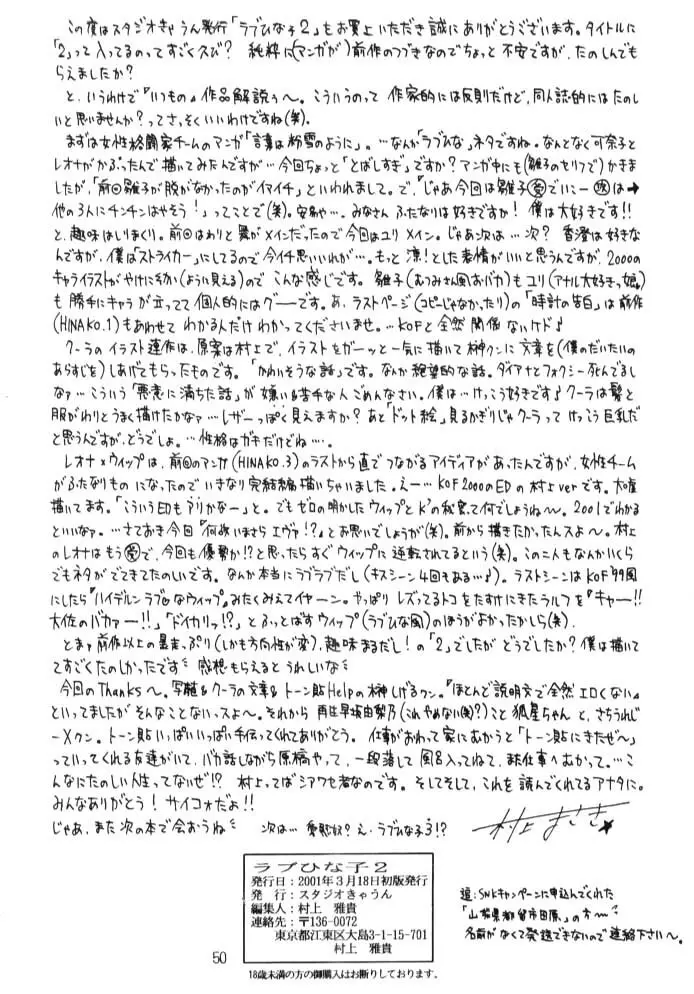 この度はスタジオきゃうん発行「ラブひな子2」をお買上いただき誠にありがとうございます。タイトルに
「2」って入ってるのってすごく久び? 純粋に(マンガが)前作のつづきなのでちょっと不安ですが、たのしんでも
らえましたか?
と、いうわけで『いつもの』作品解説ぅ〜。こういうのって作家的には反則だけど、同人誌的にはたのし
いと思いませんか?ってさっそくいいわけですね(笑)。
まずは女性格闘家チームのマンガ「言葉は粉雪のように」。…なんか「ラブひな」ネタですね。なんとなく可奈子と
レオナがかぶったんで描いてみたんですが…今回ちょっと「とばしすぎ」ですか?マンガ中にも(雛子のセリフで)かきま
したが、「前回雛子が脱がなかったのがイマイチ」といわれまして。で、「じゃあ今回は雛子
他の3人にチンチンはやそう!」ってことで(笑)。安易や…。みなさんふたなりは好きですか!僕は大好きです!!
と、趣味はしりまくり。前回はわりと舞がメインだったので今回はユリメイン。じゃあ次は…次?香澄は好きな
んですが、僕は「ストライカー」にしてるので今イチ思いいれが…。もっと凛!とした表情がいいと思うんですが、2000の
キャライラストがやけに幼か(ように見える)のでこんな感じです。雛子(むつみさん風おバカ)もユリ(アナル大好きっ娘)
も勝手にキャラが立ってて個人的にはグーです。あ、ラストページ(コピーじゃなかったり)の「時計の告白」は前作
(HINAKO.1)もあわせてわかる人だけわかってくださいませ。…KOFと全然関係ないケド♪
クーラのイラスト連作は、原案は村上で、イラストをガーッと一気に描いて榊クンに文章を(僕のだいたいの
あらすじを)しあげてもらったものです。「かわいそうな話」です。なんか絶望的な話。ダイアナとフォクシー死んでるし
なァ…こういう「悪意に満ちた話」が嫌い&苦手な人ごめんなさい。僕は…けっこう好きです♪クーラは髪と
服がわりとうまく描けたかなァ…レザーっぽく見えますか?あと「ドット絵」見るかぎりじゃクーラってけっこう巨乳だ
と思うんですが、どうでしょ。…性格はガキだけどね…。
レオナ×ウィップは、前回のマンガ(HINAKO.3)のラストから直でつながるアイディアがあったんですが、女性チーム
がふたなりものになったのでいきなり完結編描いちゃいました。えー…KOF2000のEDの村上verです。大嘘
描いてます。「こういうEDもアリかなー」と。でもゼロの明かしたウィップとK'の秘密って何でしょうね〜。2001でわかる
といいなァ。…さておき今回『何故いまさらエヴァ!?』とお思いでしょうが(笑)。前から描きたかったんスよ〜。村上
のレオナはもうで、今回も優勢か!?と思ったらすぐウィップに逆転されてるという(笑)。この二人もなんかいくら
でもネタがでてきてたのしいです。なんか本当にラブラブだし(キスシーン4回もある…♪)。ラストシーンはKOF99風
にしたら『ハイデルンラブなウィップ』みたくみえてイヤーン。やっぱりレズってるトコをたすけにきたラルフを『キャー!!
大佐のバカァー!!』「ドイカリッ!?」とふっとばすウィップ(ラブひな風)のほうがよかったかしら(笑)。
とまァ前作以上の暴走っぷり(しかも方向性が変)、趣味まるだし!の「2」でしたがどうでしたか?僕は描いて
てすごくたのしかったです 感想もらえるとうれしいな
今回のThanks〜。写植&クーラの文章&トーン貼Helpの榊しげるクン。『ほとんど説明文で全然エロくない』
といってましたがそんなことないっスよ〜。それから再生早坂由梨乃(これやめない(笑)?)こと狐星ちゃんと、さちうれじ
ーXクン。トーン貼いっぱいいっぱい手伝ってくれてありがとう。仕事がおわって家にむかうと「トーン貼にきたぜ〜」
っていってくれる友達がいて、バカ話しながら原稿やって、一段落して風呂入ってねて、また仕事へむかって。…こ
んなにたのしい人生ってないぜ!?村上ってばシアワセ者なのです。そしてそして、これを読んでくれてるアナタに。
みんなありがとう!サイコォだよ!!
じゃあ、また次の本で会おうね 次は… え、ラブひな子3!?
村上まさき
ラブひな子2
発行日：2001年3月18日初版発行
発 行：スタジオきゃうん
編集人：村上 雅貴
連絡先：〒136-0072
東京都江東区大島3-1-15-701
村上 雅貴
18歳未満の方の御購入はお断りしております。
追：SNKキャンペーンに申込んでくれた
「山梨県都留市田原」の方〜
名前がなくて発送できないので連絡下さい〜。
50